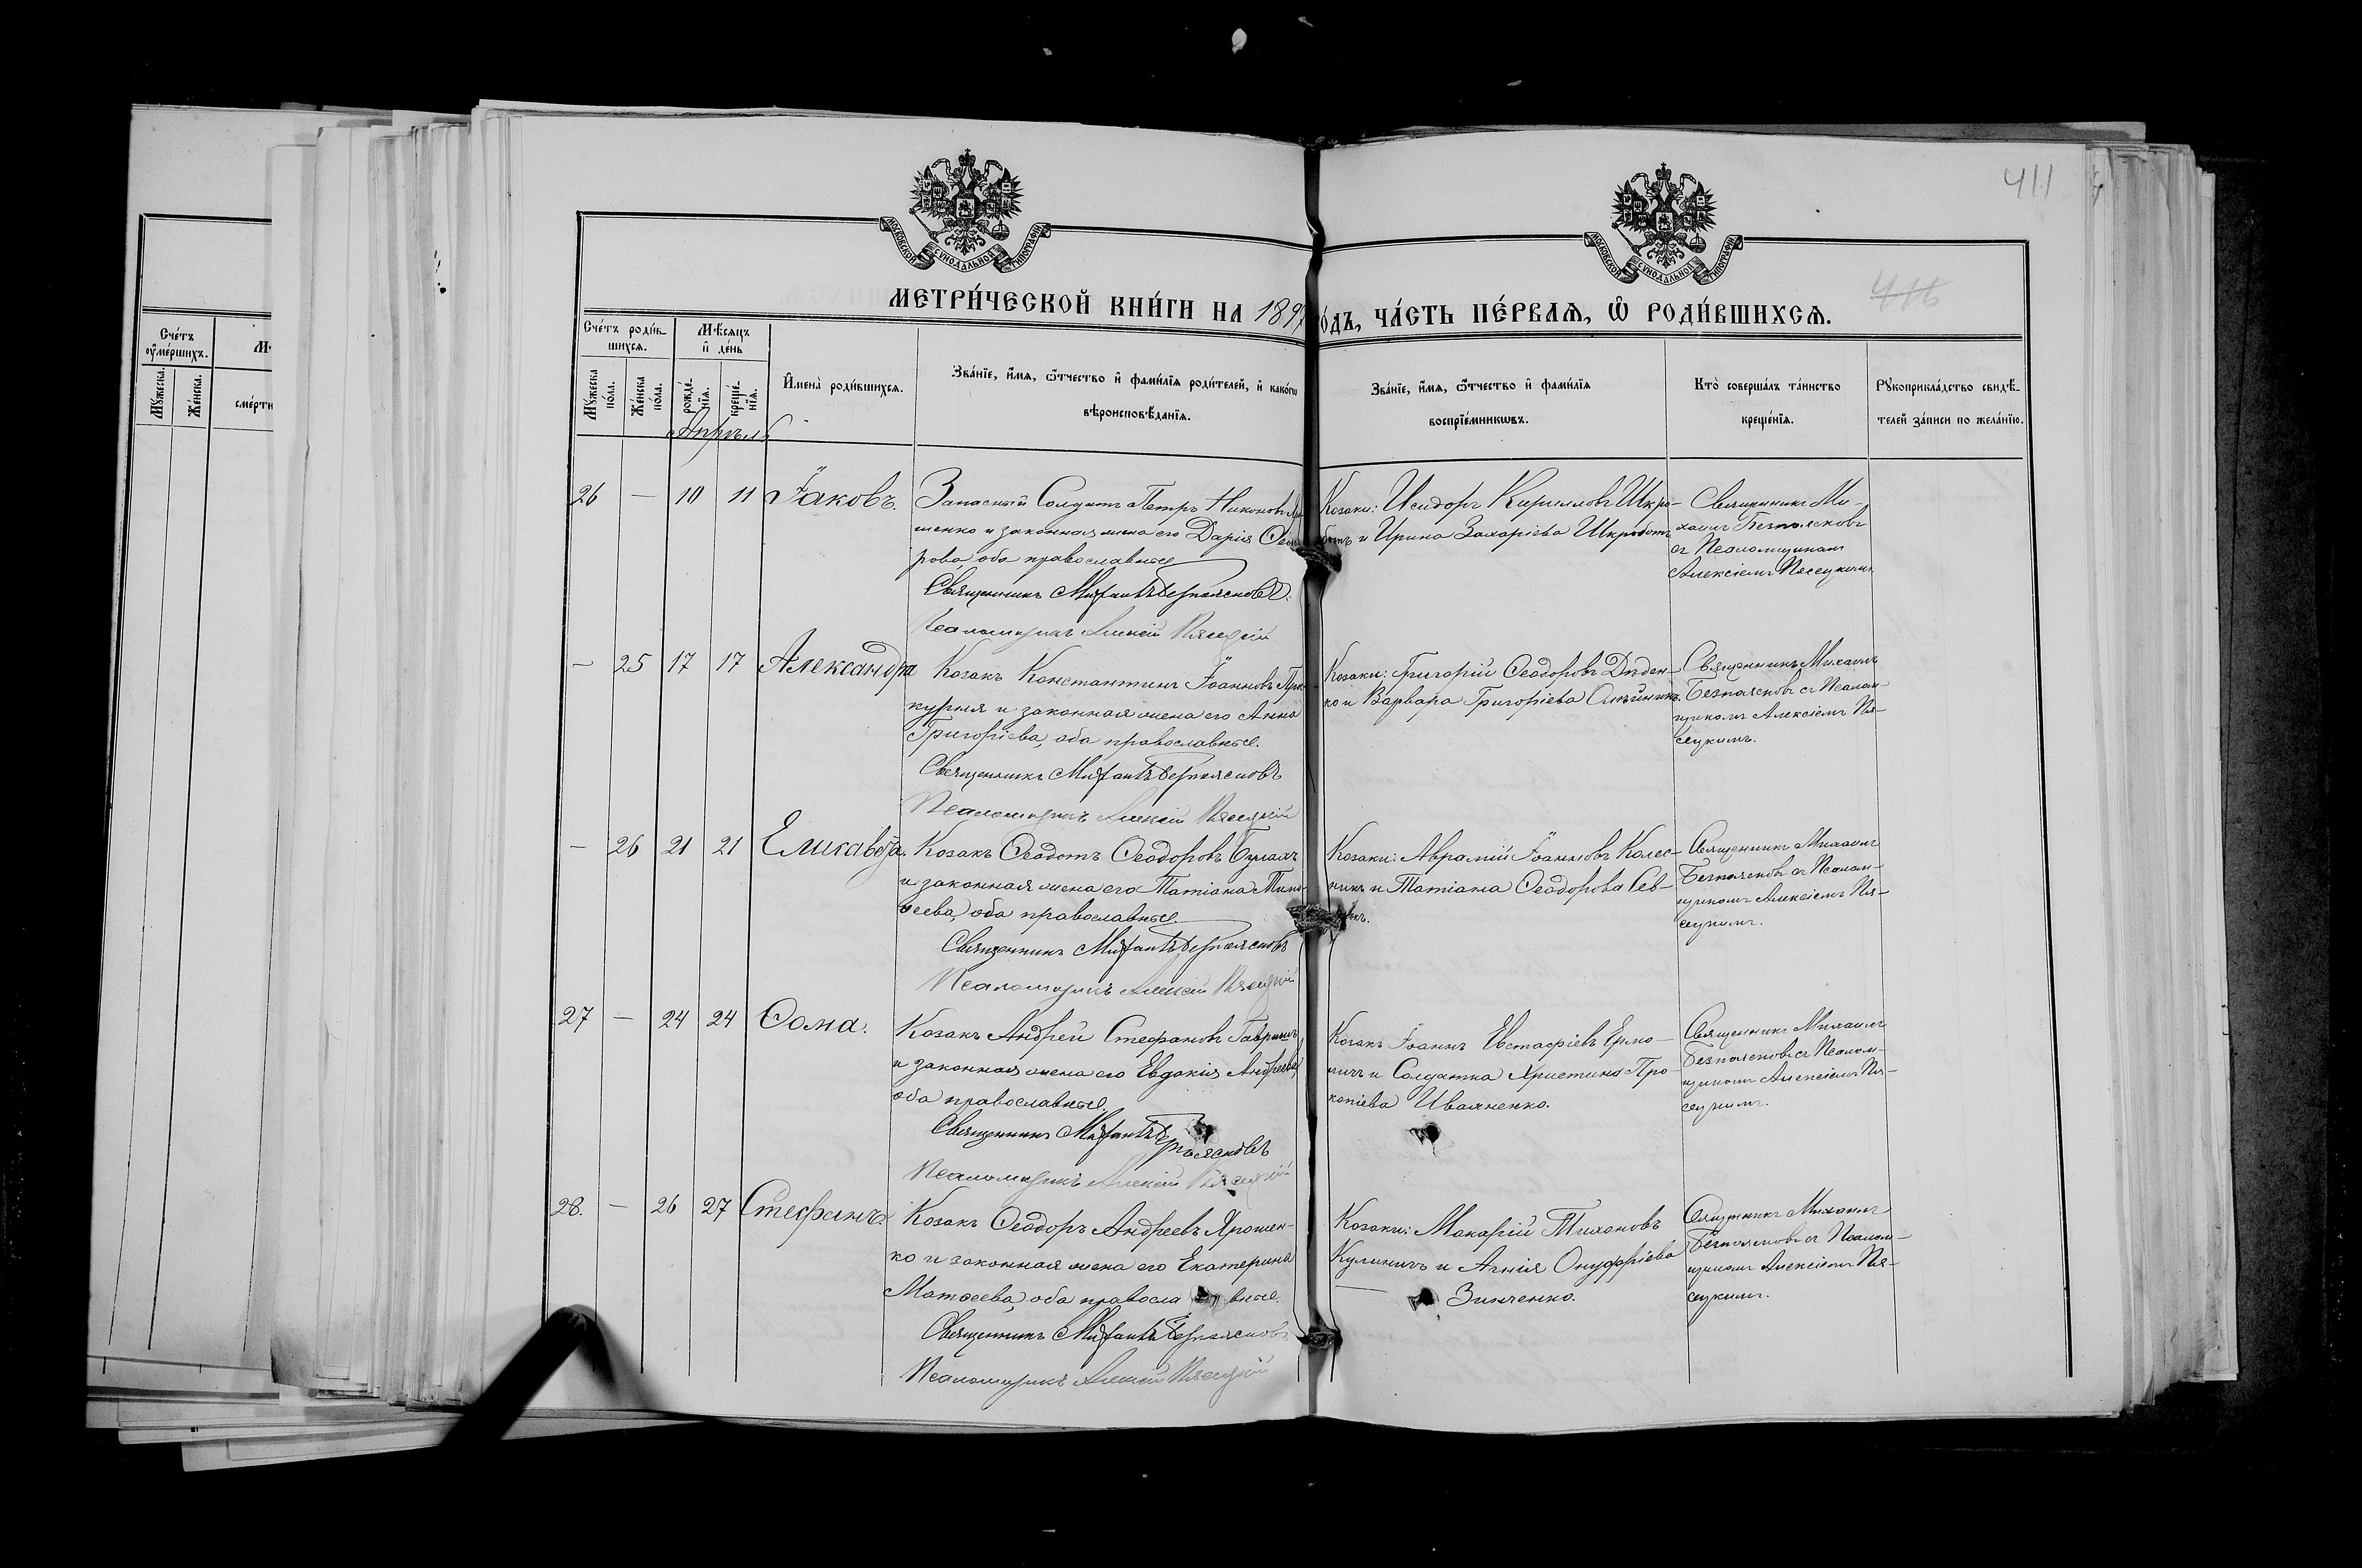 411
416
МОСКОВСКОЙ СѴНОДАЛЬНОЙ ТИПОГРАФІИ
МОСКОВСКОЙ СѴНОДАЛЬНОЙ ТИПОГРАФІИ
МЕТРИ́ЧЕСКОЙ КНИ́ГИ НА 1897
О́ДЪ, ЧА́СТЬ ПЕ́РВАѦ, Ѡ҆ РОДИ́ВШИХСѦ.
Сче́тъ
ᲂу҆ме́ршихъ.
Мꙋ́жеска.
Же́нска.
сме́рти
Сче́тъ роди́в-
шихсѧ.
Мꙋ́жеска по́ла.
Же́нска по́ла.
Мѣ́сѧцъ
и҆ де́нь
рожде́нїѧ.
креще́нїѧ.
И҆мена̀ роди́вшихсѧ.
Зва́нїе, и҆́мѧ, ѻ҆́тчество и҆ фами́лїѧ роди́телей, и҆ како́гѡ
вѣроисповѣ́данїѧ.
Зва́нїе, и҆́мѧ, ѻ҆́тчество и҆ фами́лїѧ
воспрїе́мникѡвъ.
Кто̀ соверша́лъ та́инство
креще́нїѧ.
Рꙋкоприкла́дство свидѣ́-
телей за́писи по жела́нїю.
Апрѣль
26 — 10 11 Іаковъ.
Запасный Солдатъ Петръ Никоновъ
шенко и законная жена его Дарія Ѳеодо
рова, оба православные
Священникъ Михаилъ Безпоясновъ
Псаломщикъ Алексій Пясецкій
Козаки: Исидоръ Кирилловъ Шкро-
ботъ и Ирина Захаріева Шкроботъ
Священникъ Ми-
хаилъ Безпоясновъ
съ Псаломщикомъ
Алексіемъ Пясецкимъ
— 25 17 17 Александра
Козакъ Константинъ Іоанновъ Про-
курня и законная жена его Анна
Григоріева, оба православные.
Священникъ Михаилъ Безпоясновъ
Псаломщикъ Алексій Пясецкій
Козаки: Григорій Ѳеодоровъ Дѣден-
ко и Варвара Григоріева Олѣйникъ.
Священникъ Михаилъ
Безпоясновъ съ Псалом-
щикомъ Алексіемъ Пя-
сецкимъ.
— 26 21 21 Елисавета.
Козакъ Ѳеодотъ Ѳеодоровъ Булахъ
и законная жена его Татіана Тимо-
ѳеева, оба православные.
Священникъ Михаилъ Безпоясновъ
Псаломщикъ Алексій Пясецкій
Козаки: Аврамій Іоанновъ Колес-
никъ и Татіана Ѳеодорова Сев-
Священникъ Михаилъ
Безпоясновъ съ Псалом-
щикомъ Алексіемъ Пя-
сецкимъ.
27 — 24 24 Ѳома.
Козакъ Андрей Стефановъ Гавришъ
и законная жена его Евдокія Андреева,
оба православные.
Священникъ Михаилъ Безпоясновъ
Псаломщикъ Алексій Пясецкій
Козакъ Іоаннъ Евстафіевъ Ермо-
личъ и Солдатка Христина Про-
копіева Иваненко.
Священникъ Михаилъ
Безпоясновъ съ Псалом-
щикомъ Алексіемъ Пя-
сецкимъ.
28. — 26 27 Стефанъ.
Козакъ Ѳеодоръ Андреевъ Ярошен-
ко и законная жена его Екатерина
Матѳеева, оба православные.
Священникъ Михаилъ Безпоясновъ
Псаломщикъ Алексій Пясецкій
Козаки: Макарій Тихоновъ
Кулиничъ и Агнія Онуфріева
Зинченко.
Священникъ Михаилъ
Безпоясновъ съ Псалом-
щикомъ Алексіемъ Пя-
сецкимъ.